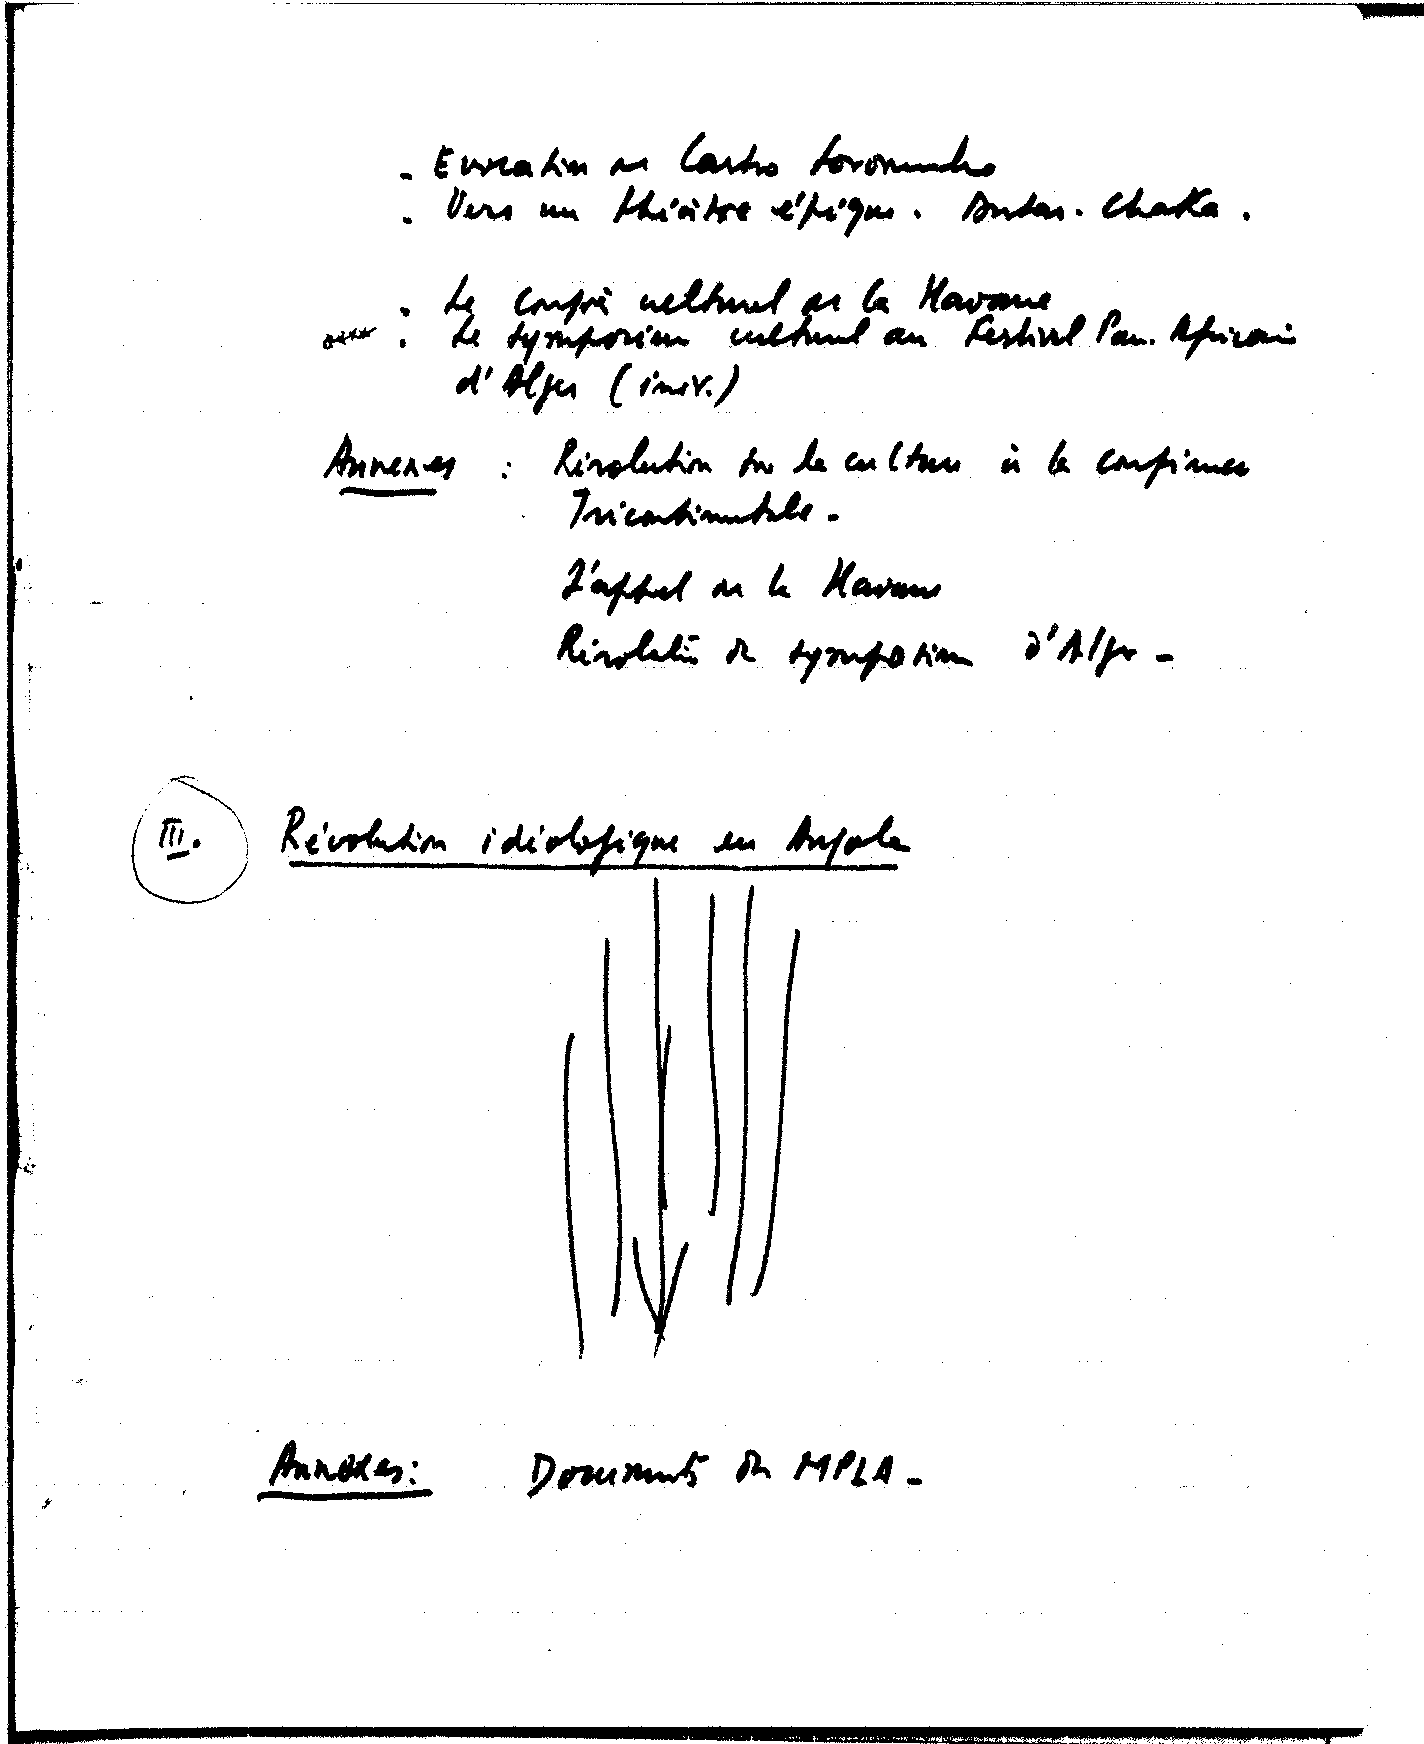 - Evocation de Castro Soromenho
. Vers un théâtre épique. Antar. Chaka.
. Le congrès culturel de la Havane
. Le symposium culturel au Festival Pan. Africain
d'Alger (univ.)
Annexes : Résolution sur la culture à la conférence
Tricontinentale.
L'appel de la Havane
Résolution du symposium d'Alger -
III. Révolution idéologique en Angola
Annexes: Documents du MPLA -